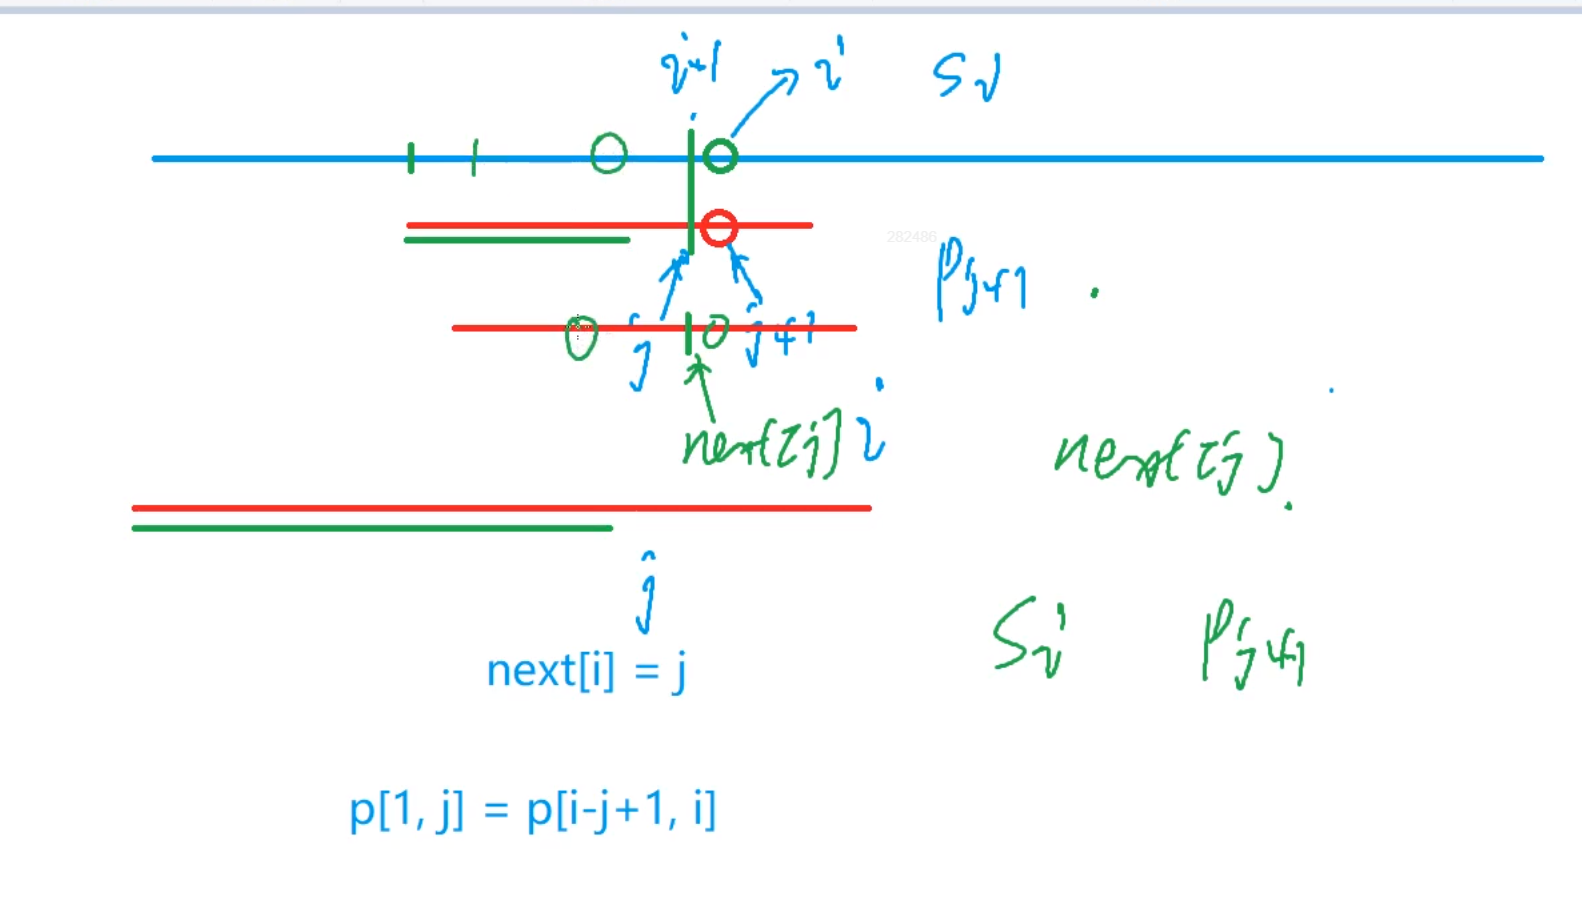 i-1 i Si
282486
Pj+1
j j+1
next[j] i
next[j]
j
Si Pj+1
next[i] = j
p[1, j] = p[i-j+1, i]